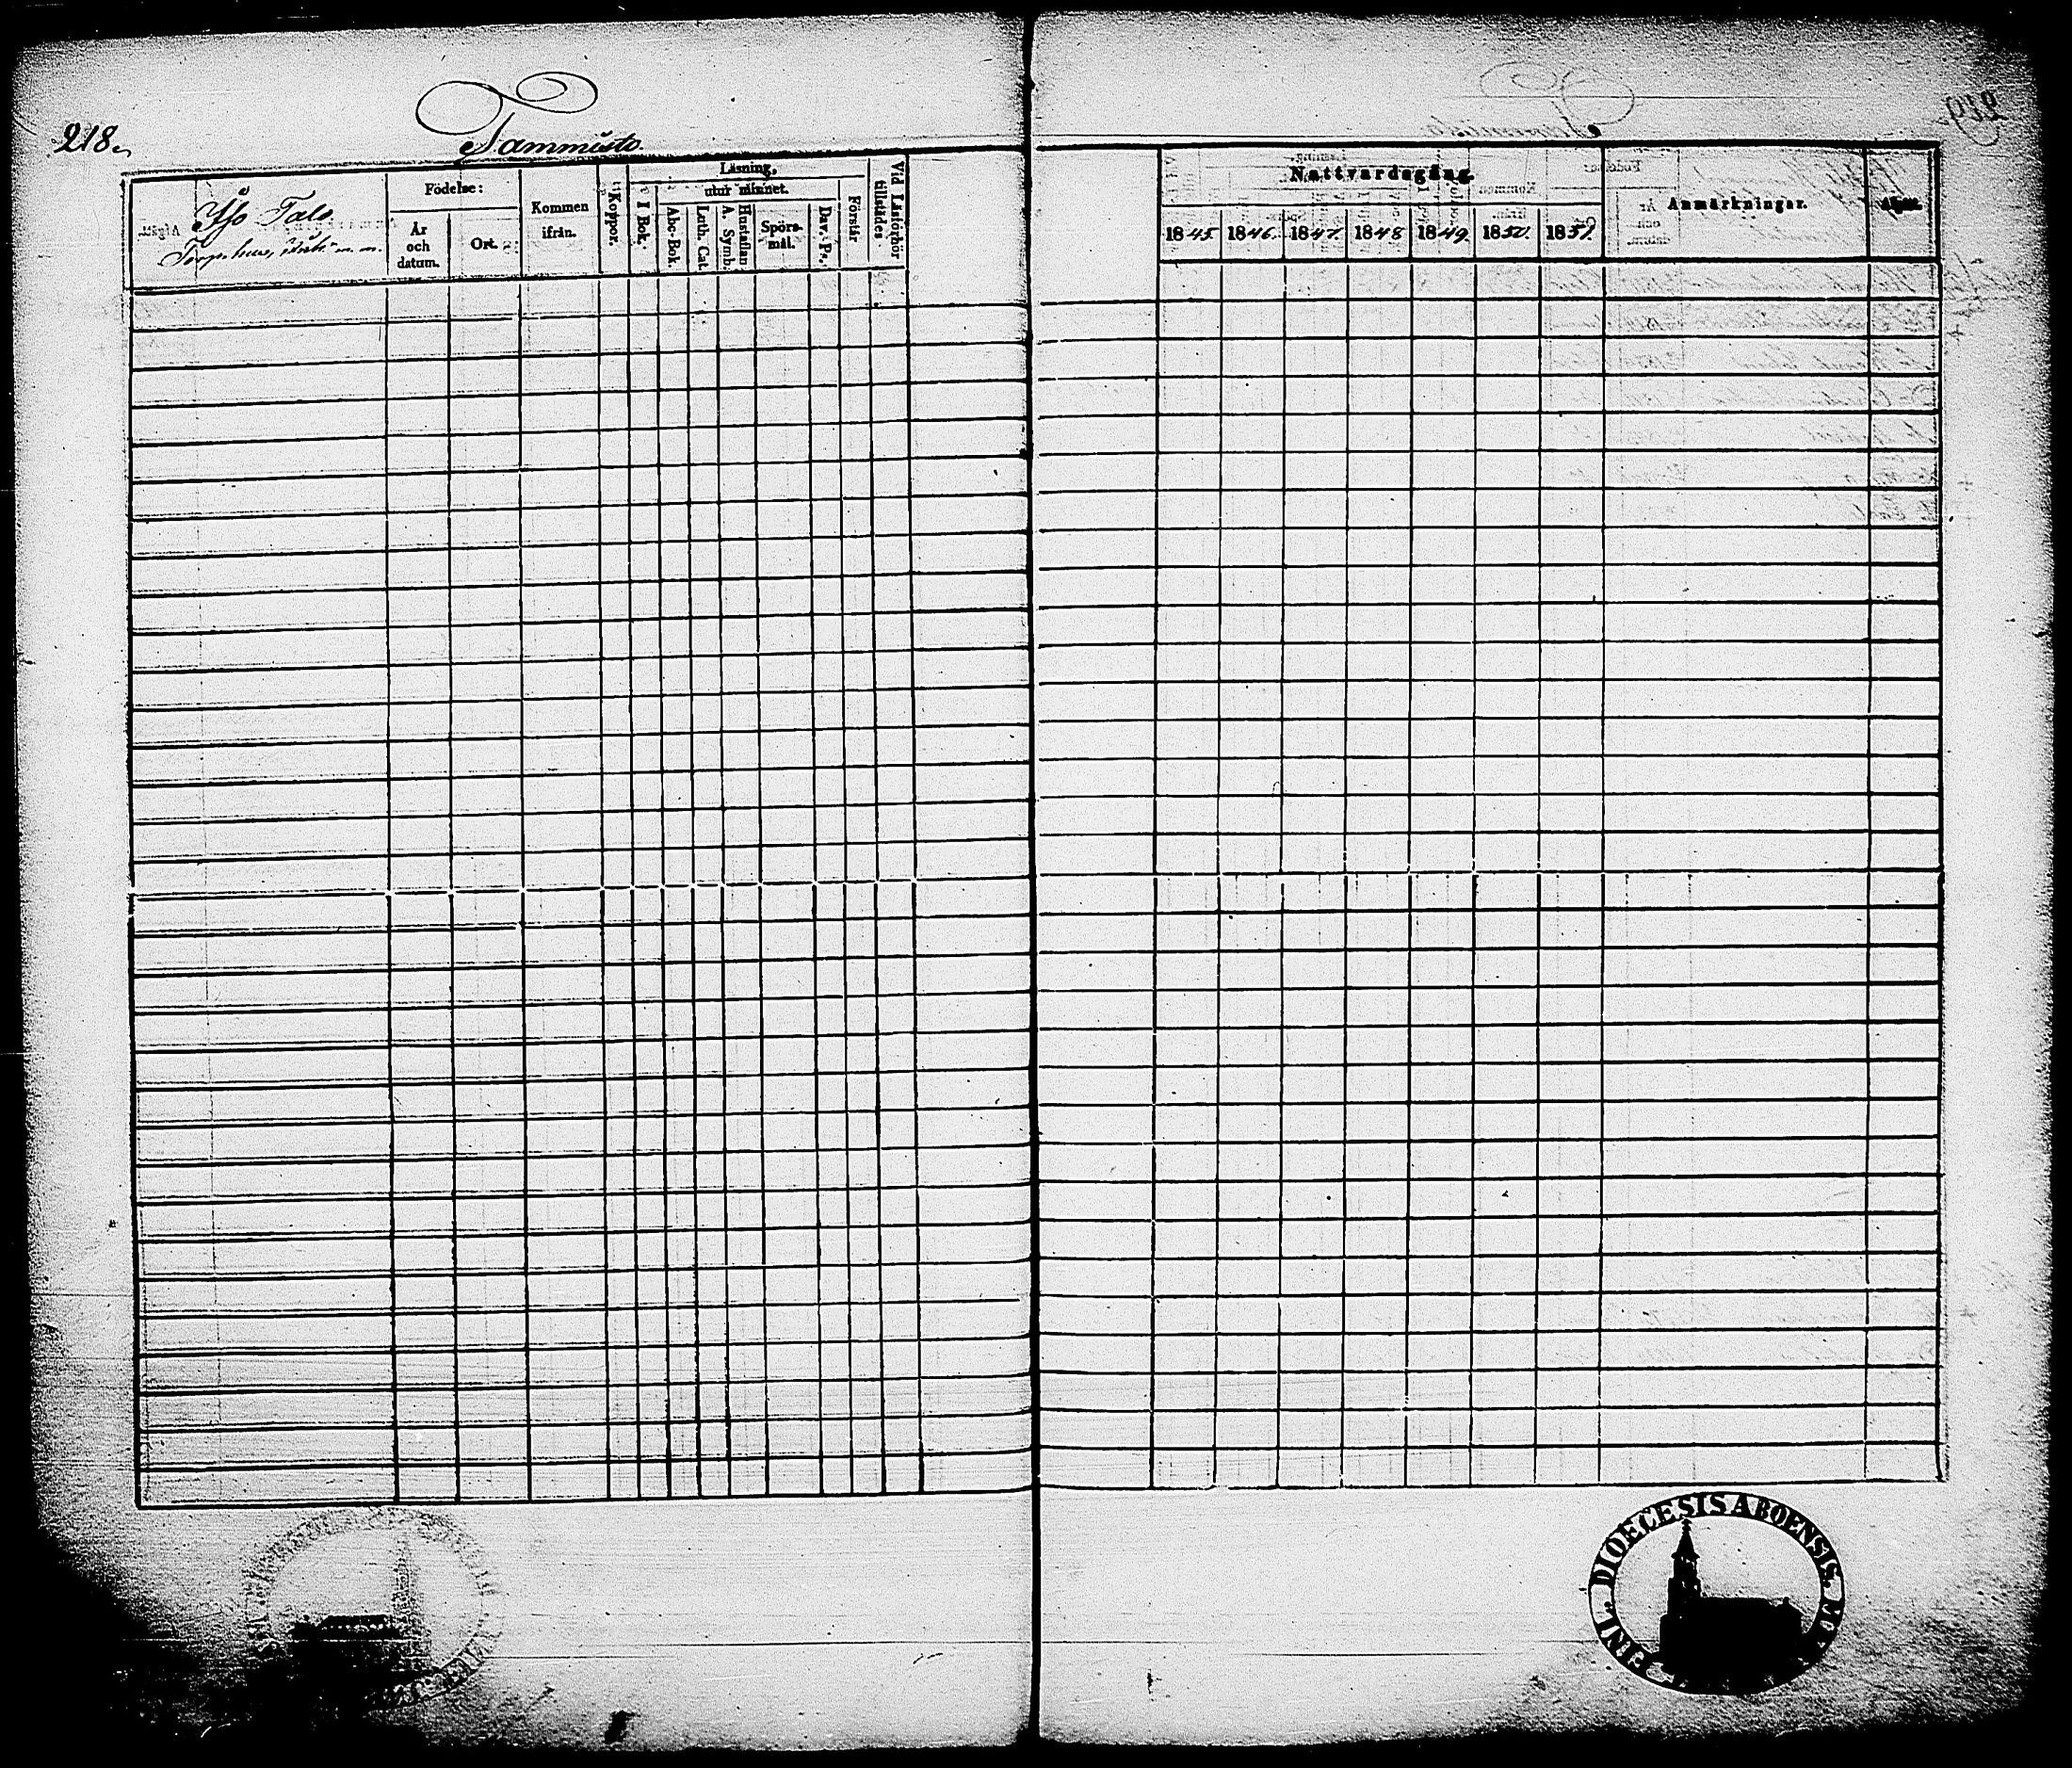 218.
Tammisto
Yso Talo
Födelse:
År och datum.
Ort.
Kommen ifrån.
Koppor.
Läsning,
I Bok.
utur minnet.
Abc-Bok.
Luth. Cat.
Hustaflan
A. Symb.
Spörs-
mål.
Dav. Ps.
Förstår
Vid Läsförhör
tillstädes
Nattvardsgång.
1845.
1846.
1847.
1848
1849.
1850.
1851.
Anmärkningar.
FINL. DIOECESIS ABOENSIS.